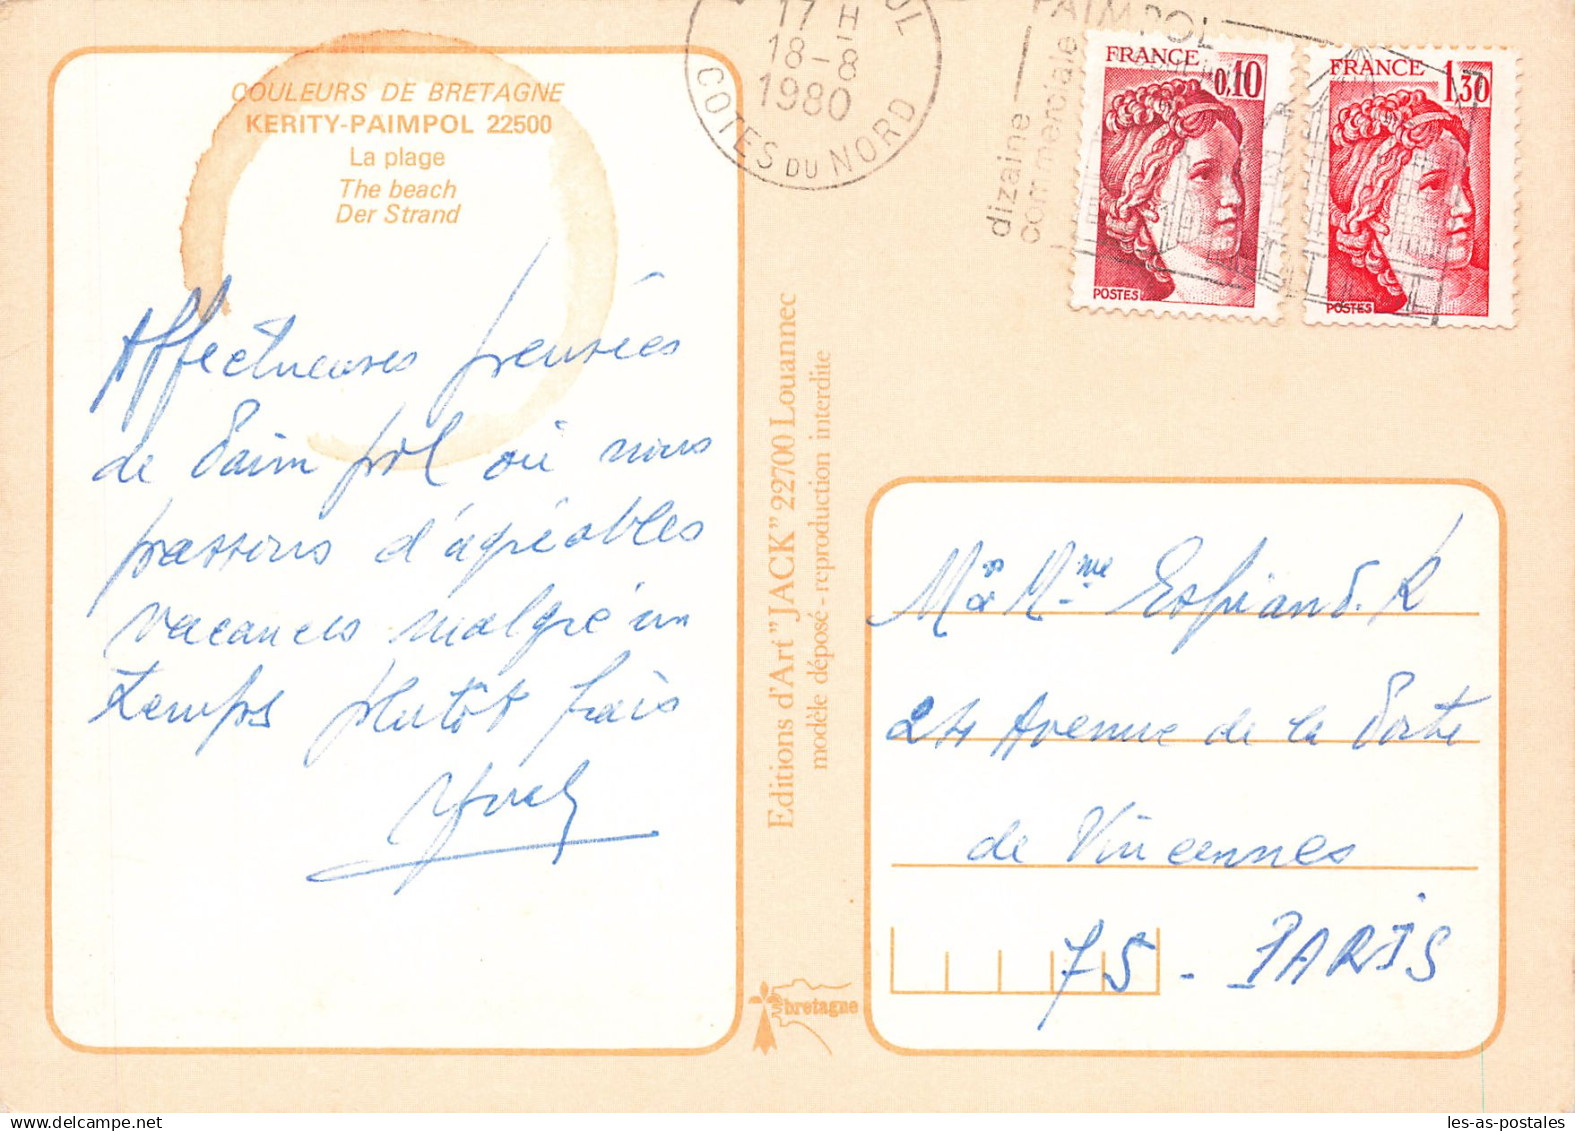 COULEURS DE BRETAGNE
KERITY-PAIMPOL 22500
La plage
The beach
Der Strand
Affectueuses pensées
de Paimpol où nous
passons d'agréables
vacances malgré un
temps plutôt frais
Editions d'Art "JACK" 22700 Louannec
modèle déposé - reproduction interdite
bretagne
17 H
18-8
1980
COTES DU NORD
PAIMPOL
dizaine
commerciale
FRANCE 0,10
POSTES
FRANCE 1,30
POSTES
M & Mme Espiand. R
24 Avenue de la Porte
de Vincennes
75 - PARIS
les-as-postales